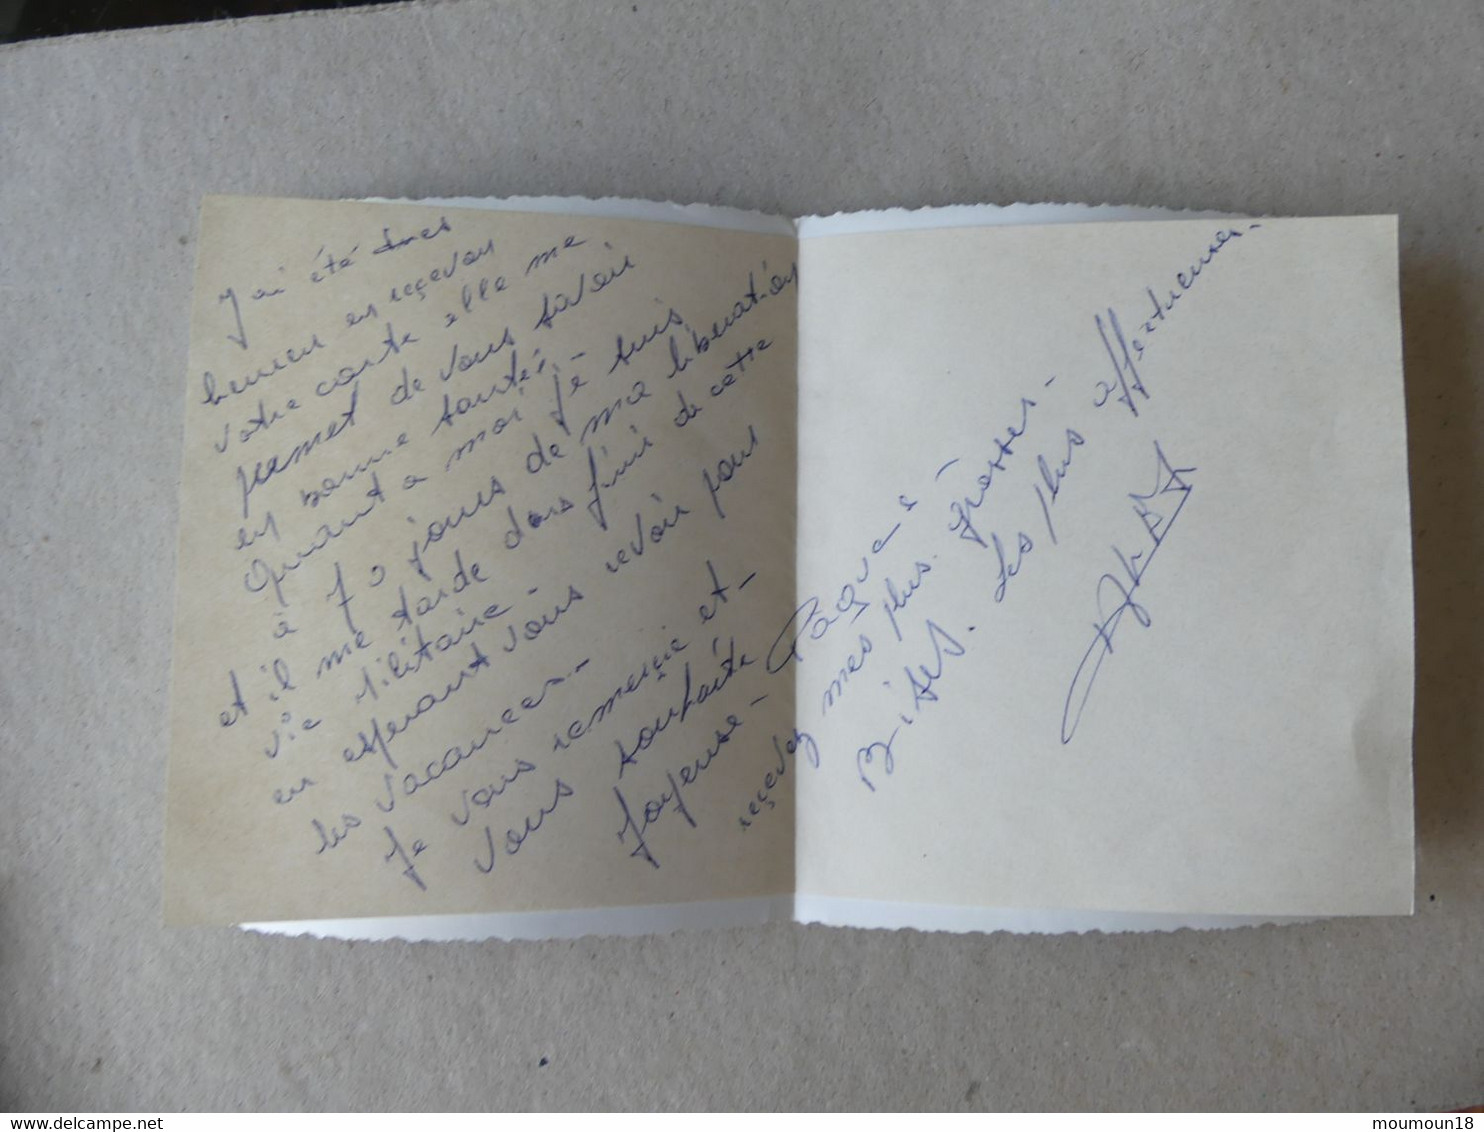 J'ai été dres
heureu en reçevan
votre carte elle me
permet de vous savoir
en bonne santée
Quant a moi je suis
à 70 jours de ma liberation
et il me tarde dans finir de cette
vie militaire -
en esperant vous revoir pour
les vacances -
Je vous remercie et -
vous souhaite
Joyeuse - Paque - e
reçevez mes plus grosses -
Bises. Les plus affectueuses -
moumoun18